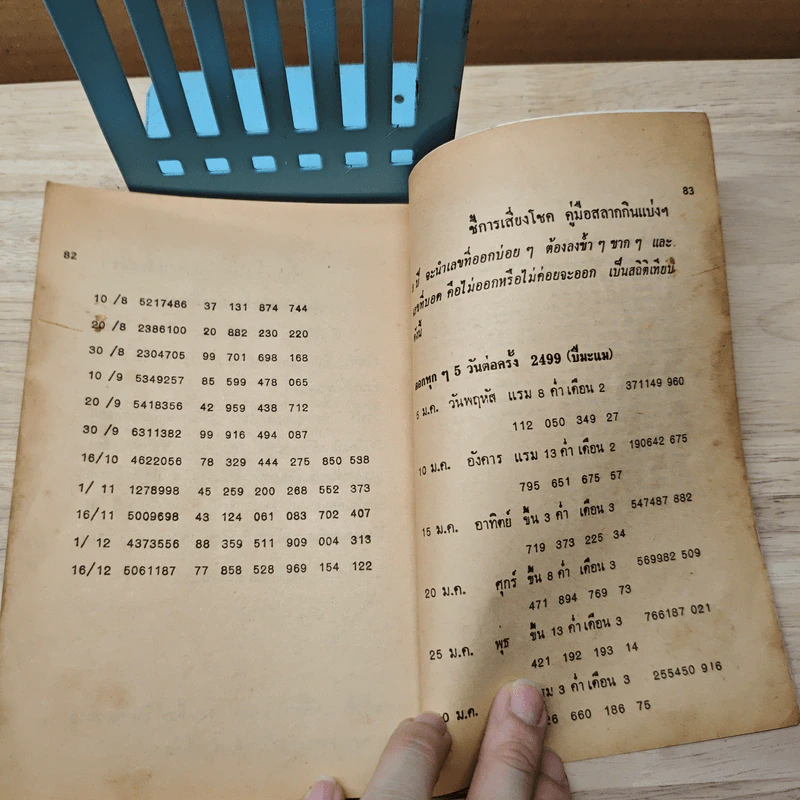 82
10 /8 5217486 37 131 874 744
20 /8 2386100 20 882 230 220
30 /8 2304705 99 701 698 168
10 /9 5349257 85 599 478 065
20 /9 5418356 42 959 438 712
30 /9 6311382 99 916 494 087
16/10 4622056 78 329 444 275 850 538
1/ 11 1278998 45 259 200 268 552 373
16/11 5009698 43 124 061 083 702 407
1/ 12 4373556 88 359 511 909 004 313
16/12 5061187 77 858 528 969 154 122
83
ชี้การเสี่ยงโชค คู่มือสลากกินแบ่งฯ
ปี จะนำเลขที่ออกบ่อย ๆ ต้องลงซ้ำ ๆ ซาก ๆ และ
เลขที่บอด คือไม่ออกหรือไม่ค่อยจะออก เป็นสถิติเทียบปี
ดังนี้
ออกทุก ๆ 5 วันต่อครั้ง 2499 (ปีมะแม)
5 ม.ค. วันพฤหัส แรม 8 ค่ำ เดือน 2 371149 960
112 050 349 27
10 ม.ค. อังคาร แรม 13 ค่ำ เดือน 2 190642 675
795 651 675 57
15 ม.ค. อาทิตย์ ขึ้น 3 ค่ำ เดือน 3 547487 882
719 373 225 34
20 ม.ค. ศุกร์ ขึ้น 8 ค่ำ เดือน 3 569982 509
471 894 769 73
25 ม.ค. พุธ ขึ้น 13 ค่ำ เดือน 3 766187 021
421 192 193 14
ม.ค. 3 ค่ำ เดือน 3 255450 916
660 186 75